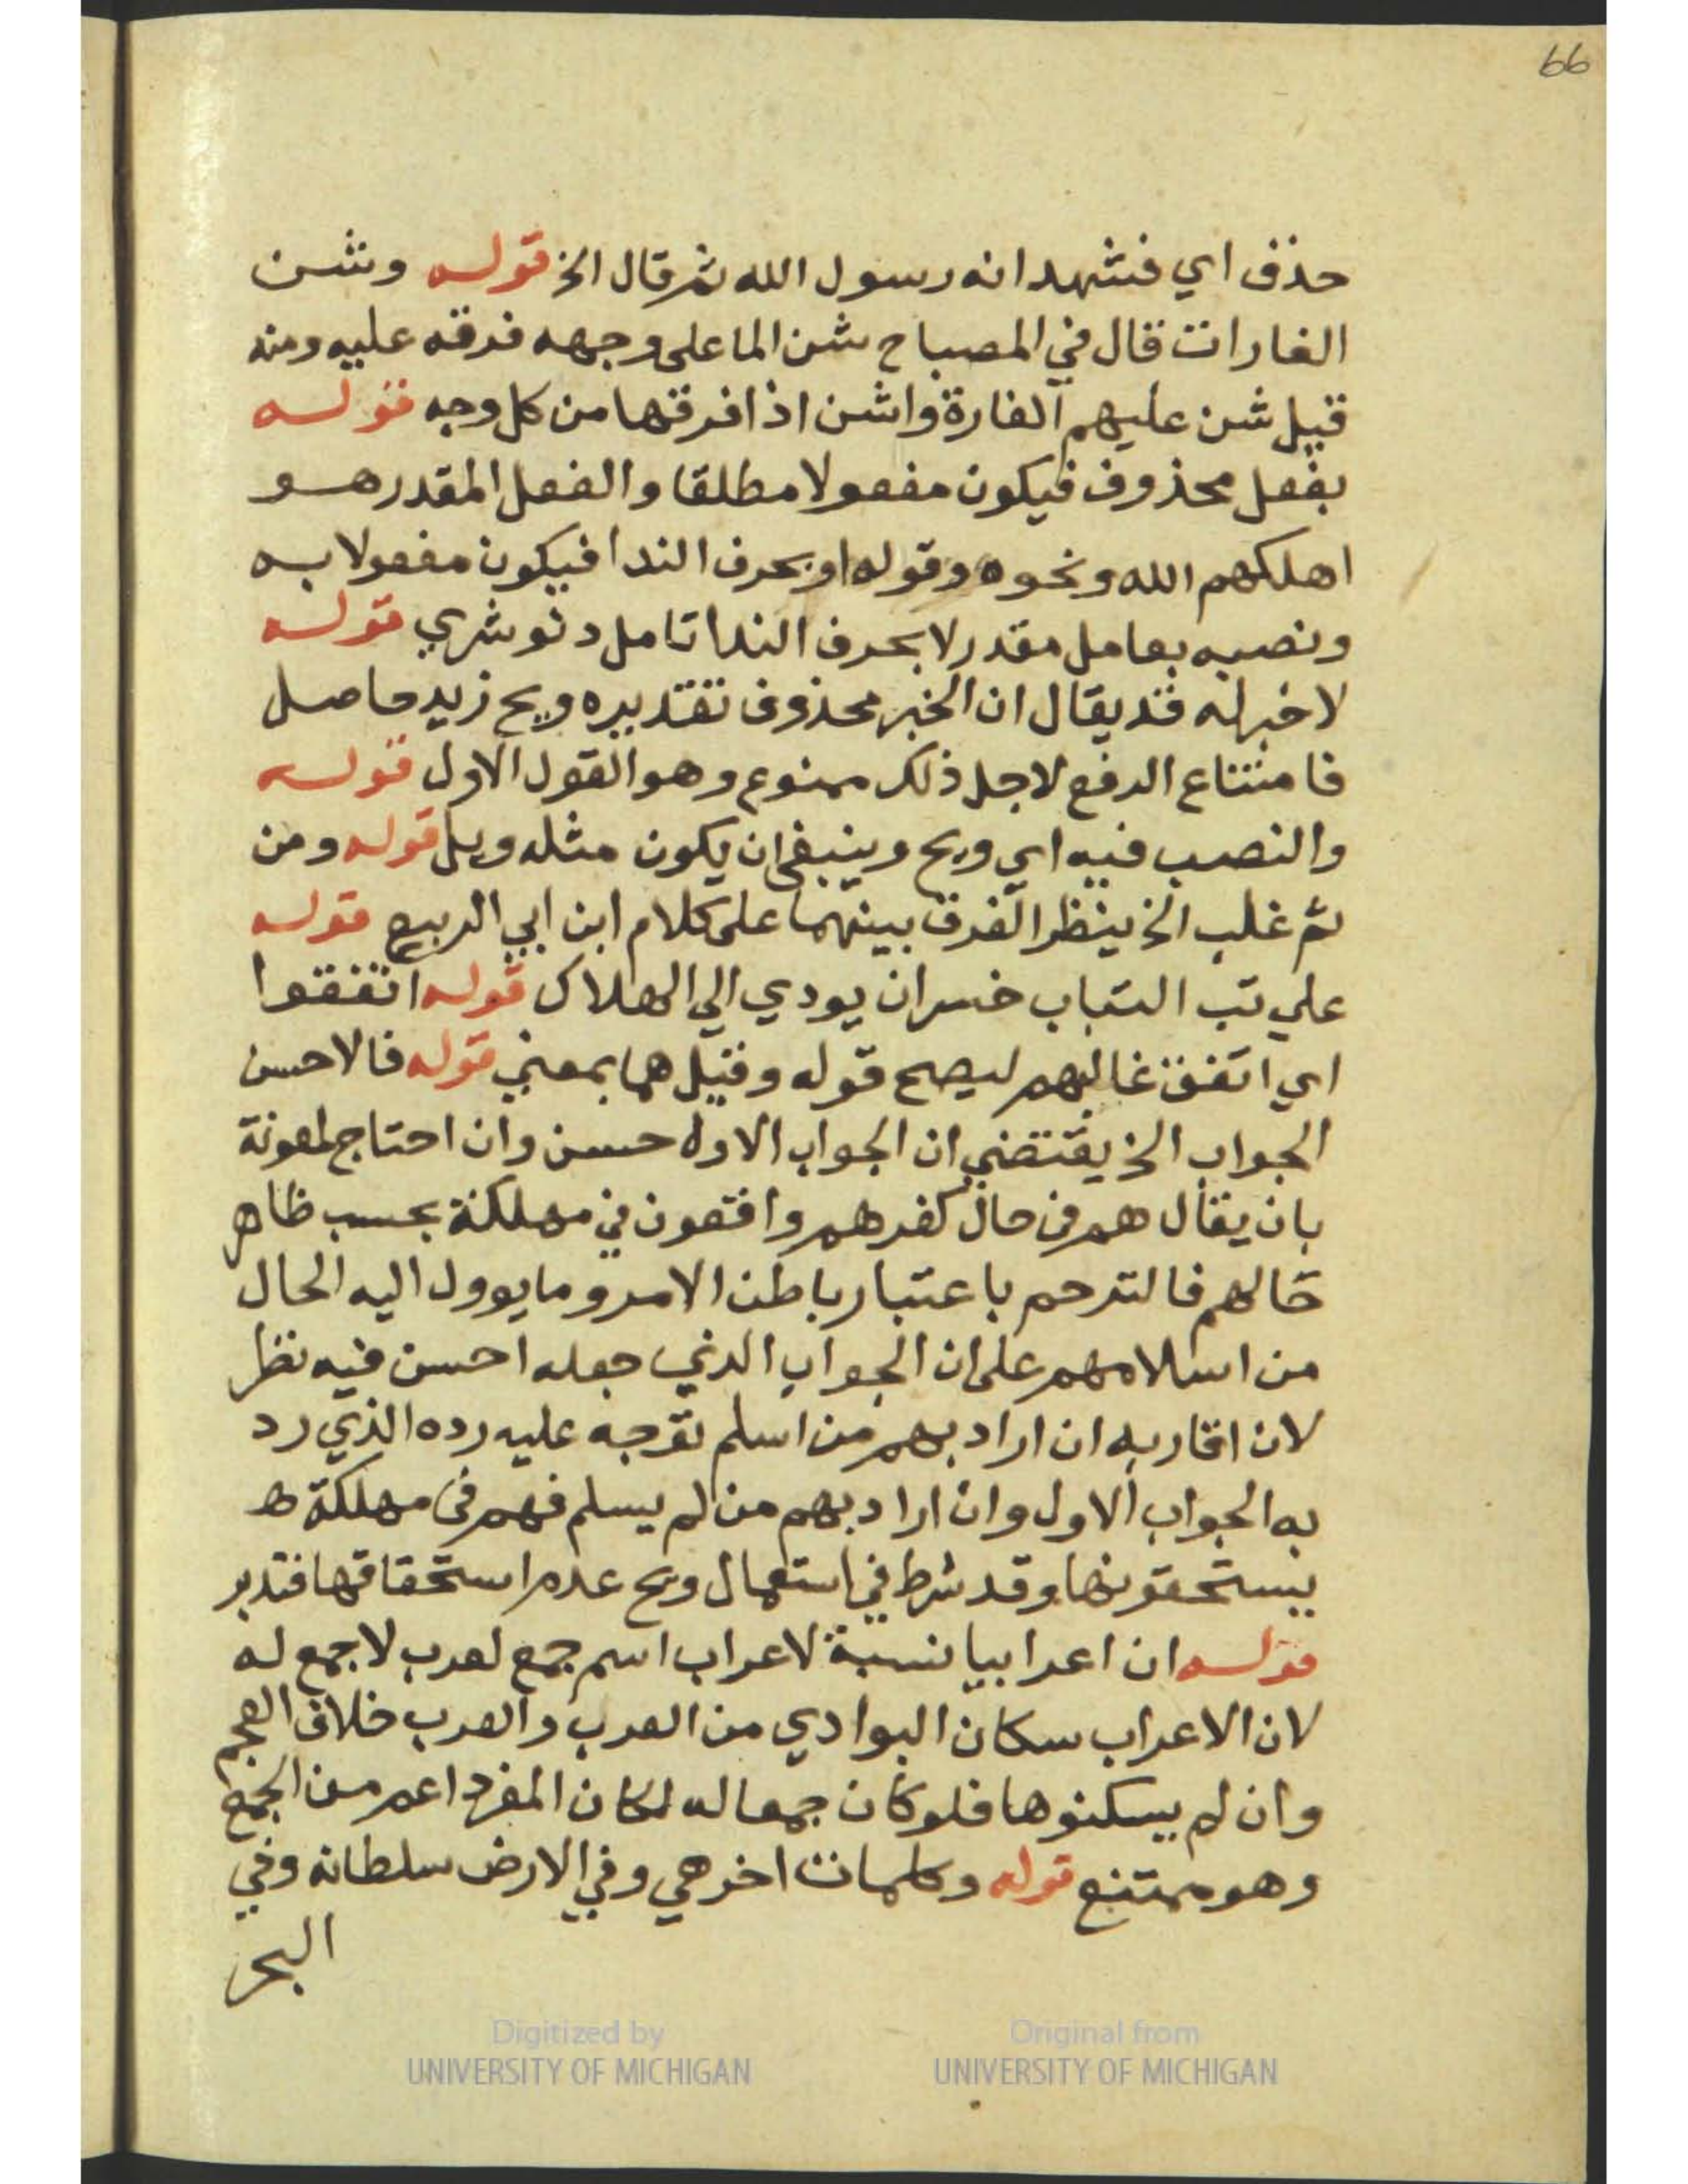 66
حذف اي فنشهد انه رسول الله ثم قال الخ قوله وشن
الغارات قال في المصباح شن الما على وجهه فرقه عليه ومنه
قيل شن عليهم الغارة واشن اذا فرقها من كل وجه قوله
بفعل محذوف فيكون مفعولا مطلقا والفعل المقدر هو
اهلكهم الله ونحوه وقوله او بحرف الندا فيكون مفعولا به
ونصبه بعامل مقدر لا بحرف الندا تامل دنوشري قوله
لا خبر له قد يقال ان الخبر محذوف تقديره ويح زيد حاصل
فامتناع الرفع لاجل ذلك ممنوع وهو القول الاول قوله
والنصب فيه اي ويح وينبغي ان يكون مثله ويل قوله ومن
ثم غلب الخ ينظر الفرق بينهما على كلام ابن ابي الربيع قوله
علي تب التباب خسران يودي الي الهلاك قوله اتفقوا
اي اتفق غالبهم ليصح قوله وقيل هما بمعني قوله فالاحسن
الجواب الخ يقتضي ان الجواب الاول حسن وان احتاج لمعونة
بان يقال هم في حال كفرهم واقعون في مهلكة بحسب ظاهر
حالهم فالترحم باعتبار باطن الامر وما يوول اليه الحال
من اسلامهم على ان الجواب الذي جعله احسن فيه نظر
لان اقاربه ان اراد بهم من اسلم توجه عليه رده الذي رد
به الجواب الاول وان اراد بهم من لم يسلم فهم في مهلكة
يستحقونها وقد شرط في استعمال ويح عدم استحقاقها فتدبر
قوله ان اعرابيا نسبة لاعراب اسم جمع لعرب لا جمع له
لان الاعراب سكان البوادي من العرب والعرب خلاف العجم
وان لم يسكنوها فلو كان جمعا له لكان المفرد اعم من الجمع
وهو ممتنع قوله وكلمات اخر هي وفي الارض سلطانه وفي
البحر
Digitized by
UNIVERSITY OF MICHIGAN
Original from
UNIVERSITY OF MICHIGAN